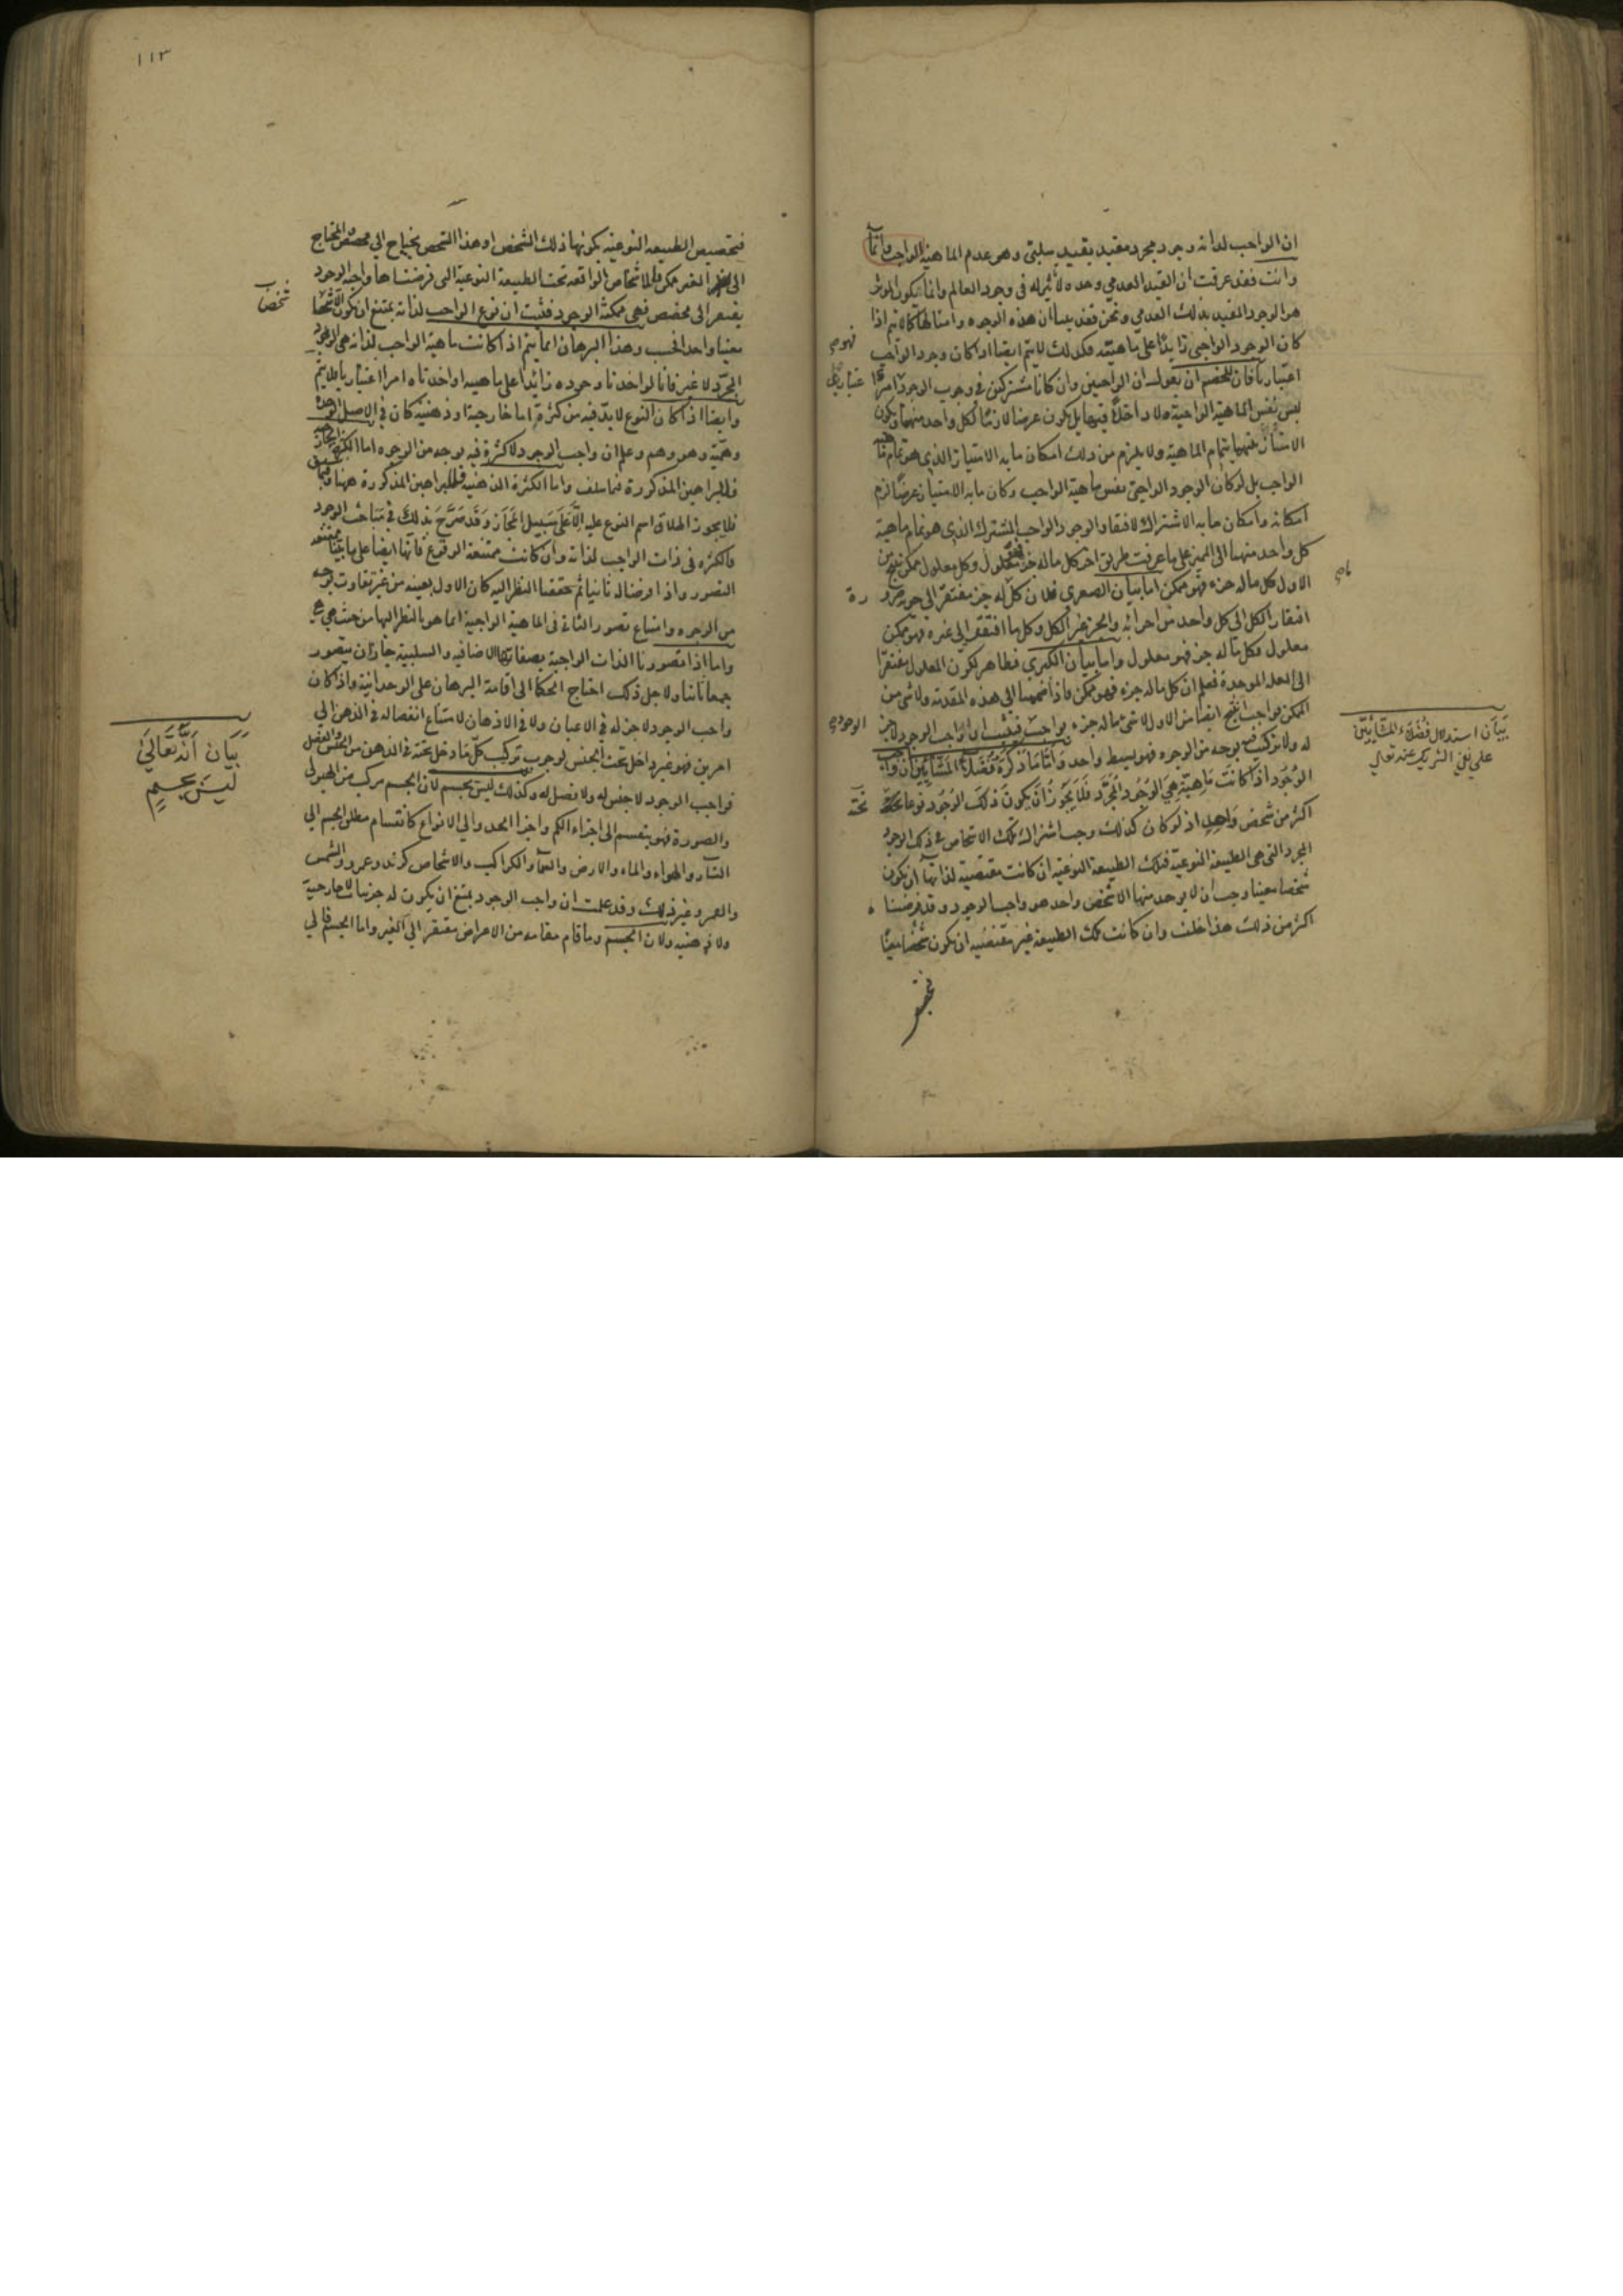 ان الواجب لذاته وجود مجرد مقيد بقيد سلبي وهو عدم الماهية
وانت فقد عرفت ان القيد العدمي وحده لا في وجود العالم وانما يكون الموثر
هو الوجود المقيد بذلك العدمي ونحن فقد بينا ان هذه الوجوه وامثالها اذا
كان الوجود الواجبي زايدا على ماهيته فكذلك لا يتم ايضا اذا كان وجود الواجب
اعتباريا فان للخصم ان يقول ان الواجبين وان كانا مشتركين في وجوب الوجود امرا
ليس نفس الماهية الواجبة ولا داخلا فيها بل يكون عرضا لازما لكل واحد منهما ويكون
الامتياز بينهما بتمام الماهية ولا يلزم من ذلك امكان ما به الامتياز الذي هو تمام
الواجب بل لو كان الوجود الواجبي نفس ماهية الواجب وكان ما به الامتياز عرضا لزم
امكانه وامكان ما به الاشتراك لافتقار الوجود الواجب المشترك الذي هو تمام ماهية
كل واحد منهما الى المميز على ما عرفت طريق اخر كل ما له جزء فهو معلول وكل معلول ممكن ينتج من
الاول كل ما له جزء فهو ممكن اما بيان الصغرى فلان كل ما له جزء مفتقر الى جزئه
افتقار الكل الى كل واحد من اجزائه والجزء غير الكل وكل ما افتقر الى غيره فهو ممكن
معلول فكل ما له جزء فهو معلول واما بيان الكبرى فظاهر لكون المعلول مفتقرا
الى العلة الموجدة فعلم ان كل ما له جزء فهو ممكن فاذا ضممنا الى هذه المقدمة ولا شي من
الممكن بواجب انتج ايضا من الاول لا شي مما له جزء بواجب فثبت ان واجب الوجود لا جزء
له ولا تركيب فيه بوجه من الوجوه فهو بسيط واحد واما ما ذكره فضلاء المشائين ان واجب
الوجود اذا كانت ماهيته هي الوجود المجرد فلا يجوز ان يكون ذلك الوجود نوعا تحته
اكثر من شخص واحد اذ لو كان كذلك وجب اشتراك تلك الاشخاص في ذلك الوجود
المجرد التي هي الطبيعة النوعية فتلك الطبيعة النوعية ان كانت مقتضية لذاتها ان يكون
شخصا معينا وجب ان لا يوجد منها الا شخص واحد هو واجب الوجود وقد فرضنا
اكثر من ذلك هذا خلف وان كانت تلك الطبيعة غير مقتضية ان يكون شخصا معينا
بيان استدلال فضلاء المشائين
على نفي الشريك عنه تعالى
١١٣
فتخصيص الطبيعة النوعية بكونها ذلك الشخص او هذا الشخص يحتاج الى مخصص والمحتاج
الى الغير ممكن فالاشخاص الواقعة تحت الطبيعة النوعية التي فرضناها واجبة الوجود
يفتقر الى مخصص فهي ممكنة الوجود فثبت ان نوع الواجب لذاته يمتنع ان يكون الا شخصا
معينا واحدا فحسب وهذا البرهان انما يتم اذا كانت ماهية الواجب لذاته هي الوجود
المجرد لا غير فانا لو اخذنا وجوده زائدا على ماهيته او اخذناه امرا اعتباريا لم يتم
وايضا اذا كان النوع لا بد فيه من كثرة اما خارجية او ذهنية كان في الاصل
وهمية وهو وهم وعلم ان واجب الوجود لا كثرة فيه بوجه من الوجوه اما الكثرة
فللبراهين المذكورة فيما سلف واما الكثرة الذهنية فللبراهين المذكورة ههنا
فلا يجوز اطلاق اسم النوع عليه الا على سبيل المجاز وقد صرح بذلك في مباحث الوجود
فالكثرة في ذات الواجب لذاته وان كانت ممتنعة الوقوع فانها ايضا على ما بينا ممتنعة
التصور واذا فرضنا له ثانيا ثم حققنا النظر اليه كان الاول بعينه من غير تفاوت بوجه
من الوجوه وامتناع تصور الثاني في الماهية الواجبة انما هو بالنظر اليها من حيث هي هي
واما اذا تصورنا الذات الواجبة بصفاتها الاضافية والسلبية جاز ان يتصور
ولاجل ذلك احتاج الحكما الى اقامة البرهان على الوحدانية واذا كان
واجب الوجود لا جزء له في الاعيان ولا في الاذهان لامتناع انفصاله في الذهن الى
امرين فهو غير داخل تحت الجنس لوجوب تركيب كل ما دخل تحته في الذهن من الجنس والفصل
فواجب الوجود لا جنس له ولا فصل له وكذلك ليس بجسم لان الجسم مركب من الهيولى
والصورة فهو ينقسم الى اجزاء الكم واجزا الحد والى الانواع كانقسام مطلق الجسم الى
النار والهواء والماء والارض والسماء والكواكب والاشخاص كزيد وعمرو والشمس
والقمر وغير ذلك وقد علمت ان واجب الوجود يمتنع ان يكون له جزئيات لا خارجية
ولا ذهنية ولان الجسم وما قام مقامه من الاعراض مفتقر الى الغير واما الجسم فالى
بيان انه تعالى
ليس بجسم